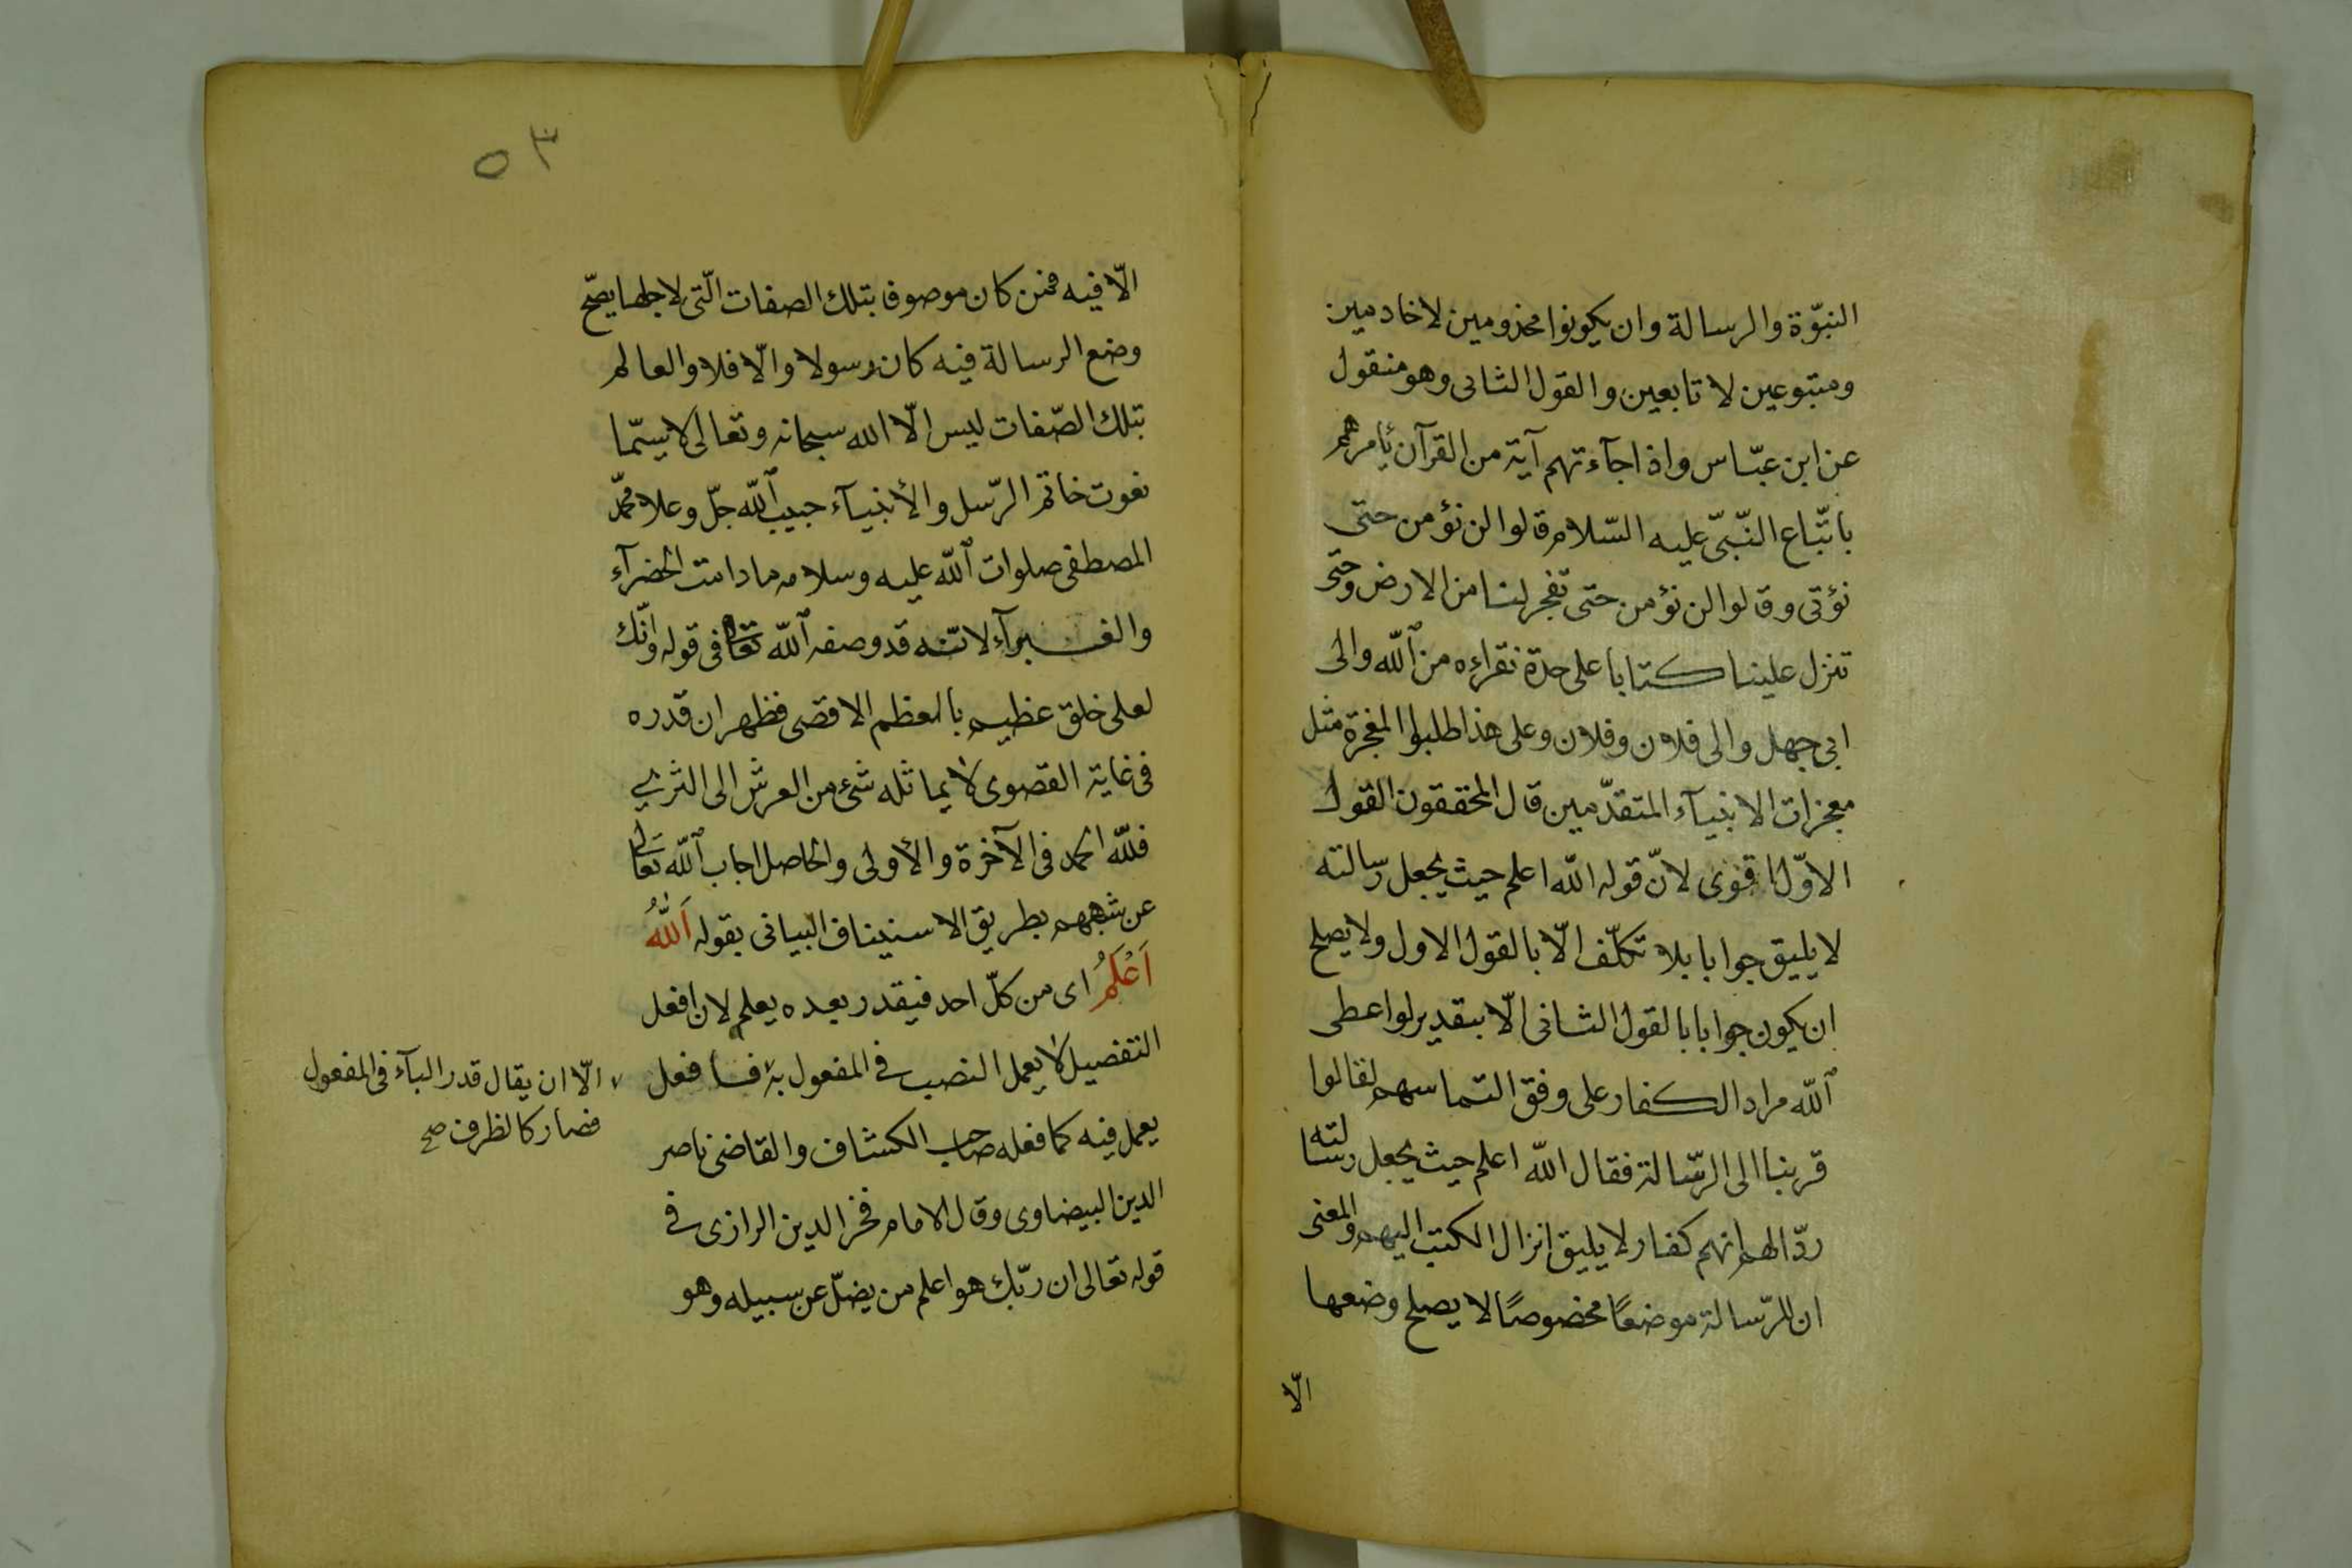 النبوّة والرسالة وان يكونوا مخذومين لا خادمين
ومتبوعين لا تابعين والقول الثانى وهو منقول
عن ابن عبّاس واذا جآءتهم آية من القرآن يأمرهم
باتّباع النّبىّ عليه السّلام قالوا لن نؤمن حتى
نؤتى وقالوا لن نؤمن حتى تفجر لنا من الارض وحتى
تنزل علينا كتابا على حدة نقراءه من اللّه والى
ابى جهل والى فلان وفلان وعلى هذا طلبوا المعجزة مثل
معجزات الانبيآء المتقدّمين قال المحققون القول
الاوّل اقوى لانّ قوله اللّه اعلم حيث يجعل رسالته
لا يليق جوابا بلا تكلّف الّا بالقول الاول ولا يصلح
ان يكون جوابا بالقول الثانى الّا بتقدير لو اعطى
اللّه مراد الكفار على وفق التماسهم لقالوا
قربنا الى الرّسالة فقال اللّه اعلم حيث يجعل رسالته
ردّا لهم انهم كفار لا يليق انزال الكتب اليهم والمعنى
ان للرّسالة موضعًا مخصوصًا لا يصلح وضعها
الّا
٥٣
الّا فيه فمن كان موصوفا بتلك الصفات الّتى لاجلها يصحّ
وضع الرسالة فيه كان رسولا والّا فلا والعالم
بتلك الصّفات ليس الّا الله سبحانه وتعالى لا سيّما
نعوت خاتم الرّسل والأنبيآء حبيب اللّه جلّ وعلا محمّد
المصطفى صلوات اللّه عليه وسلامه ما دامت الخضرآء
والغبرآء لانّه قد وصفه اللّه تعالى فى قوله وانّك
لعلى خلق عظيم بالعظم الاقصى فظهر ان قدره
فى غاية القصوى لا يماثله شئ من العرش الى الثرى
فللّه الحمد فى الآخرة والأولى والحاصل اجاب اللّه تعالى
عن شبههم بطريق الاستيناف البيانى بقوله اَللّٰهُ
اَعْلَمُ اى من كلّ احد فيقدر بعده يعلم لان افعل
التفضيل لا يعمل النصب فى المفعول به فافعل
الّا ان يقال قدر البآء فى المفعول
فصار كالظرف صح
يعمل فيه كما فعله صاحب الكشاف والقاضى ناصر
الدين البيضاوى وقال الامام فخر الدين الرازى فى
قوله تعالى ان ربّك هو اعلم من يضلّ عن سبيله وهو